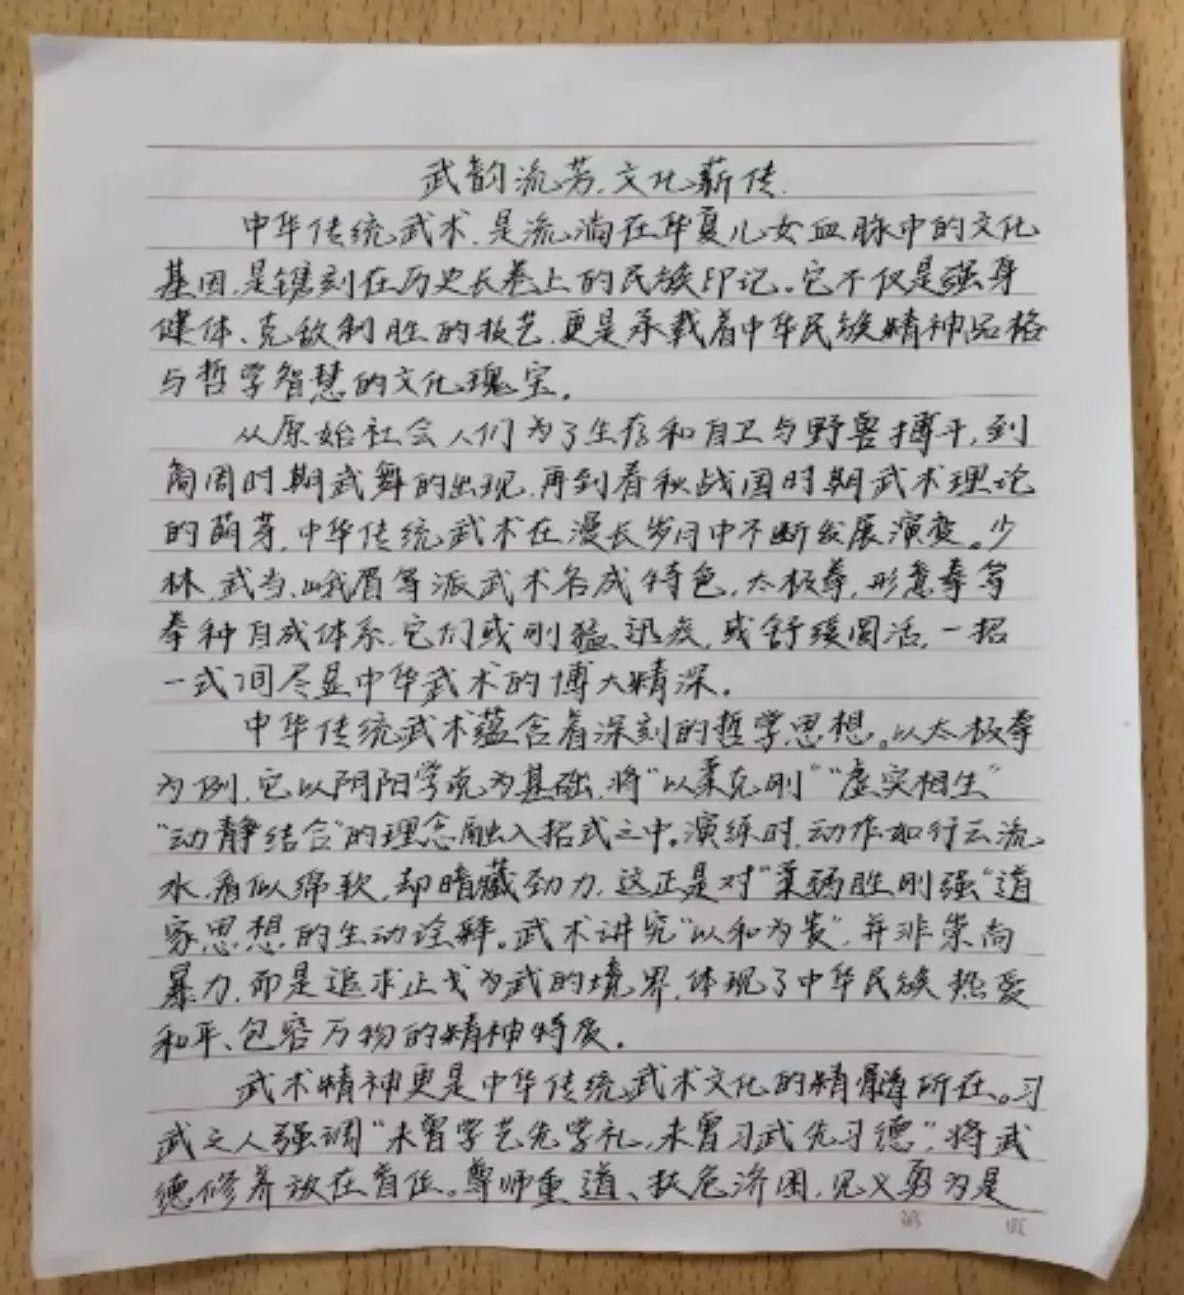 武韵流芳，文化薪传
中华传统武术，是流淌在华夏儿女血脉中的文化
基因，是镌刻在历史长卷上的民族印记。它不仅是强身
健体、克敌制胜的技艺，更是承载着中华民族精神品格
与哲学智慧的文化瑰宝。
从原始社会人们为了生存和自卫与野兽搏斗，到
商周时期武舞的出现，再到春秋战国时期武术理论
的萌芽，中华传统武术在漫长岁月中不断发展演变。少
林、武当、峨眉等派武术各成特色，太极拳，形意拳等
拳种自成体系，它们或刚猛迅疾，或舒缓圆活，一招
一式间尽显中华武术的博大精深。
中华传统武术蕴含着深刻的哲学思想。以太极拳
为例，它以阴阳学说为基础，将“以柔克刚”“虚实相生”
“动静结合”的理念融入招式之中。演练时，动作如行云流
水，看似绵软，却暗藏劲力，这正是对“柔弱胜刚强”道
家思想的生动诠释。武术讲究“以和为贵”，并非崇尚
暴力，而是追求止戈为武的境界，体现了中华民族热爱
和平、包容万物的精神特质。
武术精神更是中华传统武术文化的精髓所在。习
武之人强调“未曾学艺先学礼，未曾习武先习德”，将武
德修养放在首位。尊师重道、扶危济困，见义勇为是
第 页